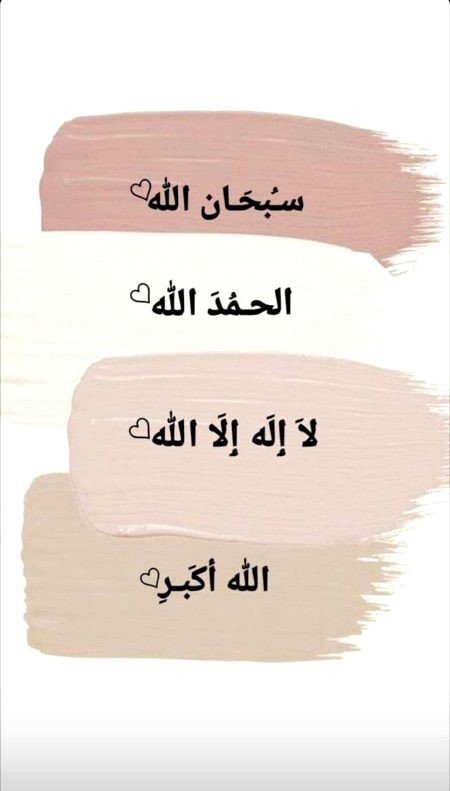 سـُبحَـان الله♡
الحـمُدَ الله♡
لاَ إِلَه إِلَا الله♡
الله أكَبـرِ♡